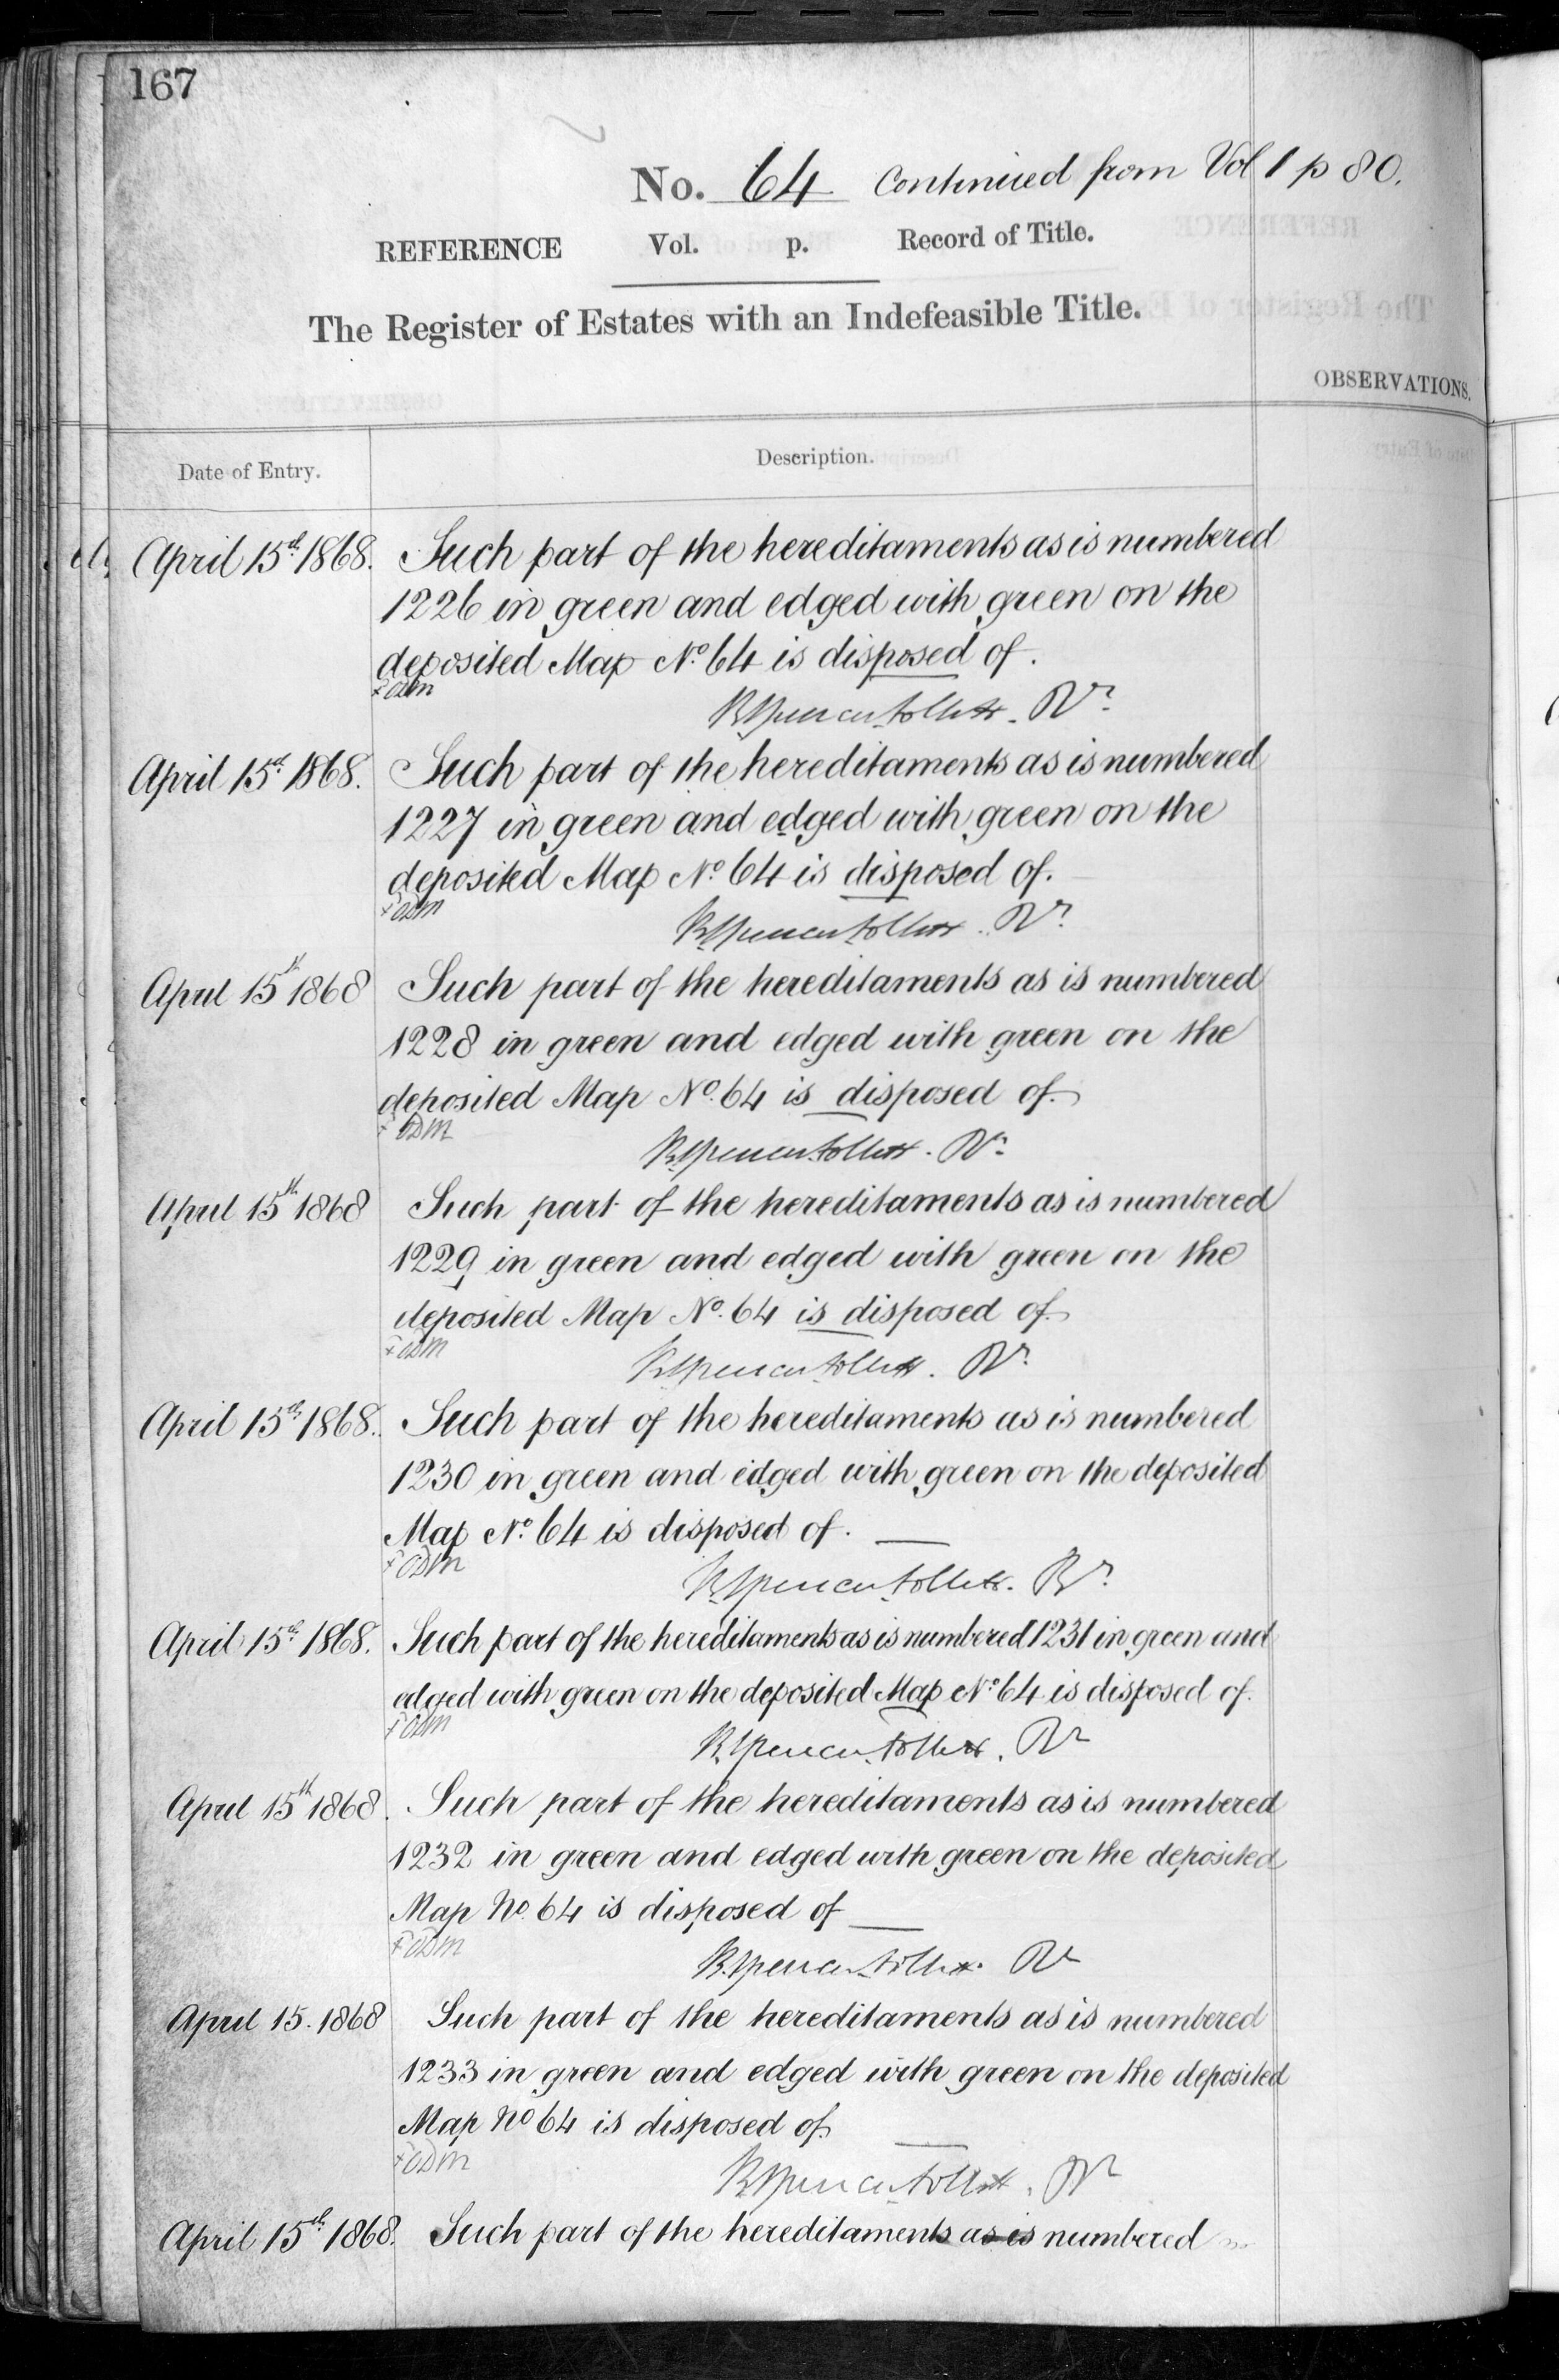 167
No. 64 Continued from Vol 1 p 80.
REFERENCE Vol. p. Record of Title.
The Register of Estates with an Indefeasible Title.
OBSERVATIONS.
Date of Entry. Description.
April 15th 1868. Such part of the hereditaments as is numbered
1226 in green and edged with green on the
deposited Map No. 64 is disposed of.
ODM
R Spencer Follett. Rr.
April 15th 1868. Such part of the hereditaments as is numbered
1227 in green and edged with green on the
deposited Map No. 64 is disposed of.
ODM
R Spencer Follett. Rr.
April 15th 1868 Such part of the hereditaments as is numbered
1228 in green and edged with green on the
deposited Map No. 64 is disposed of.
ODM
R Spencer Follett. Rr.
April 15th 1868 Such part of the hereditaments as is numbered
1229 in green and edged with green on the
deposited Map No. 64 is disposed of.
ODM
R Spencer Follett. Rr.
April 15th 1868. Such part of the hereditaments as is numbered
1230 in green and edged with green on the deposited
Map No. 64 is disposed of.
ODM
R Spencer Follett. Rr.
April 15th 1868. Such part of the hereditaments as is numbered 1231 in green and
edged with green on the deposited Map No. 64 is disposed of.
ODM
R Spencer Follett. Rr
April 15th 1868. Such part of the hereditaments as is numbered
1232 in green and edged with green on the deposited
Map No. 64 is disposed of
ODM
R Spencer Follett. Rr
April 15. 1868 Such part of the hereditaments as is numbered
1233 in green and edged with green on the deposited
Map No 64 is disposed of.
ODM
R Spencer Follett. Rr
April 15th 1868. Such part of the hereditaments as is numbered